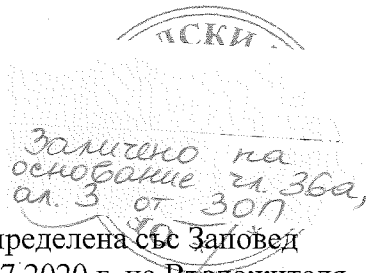 ЛСКИ
Заличено на
основание чл. 36а,
ал. 3 от ЗОП
пределена със Заповед
7.2020 г. на Възложителя